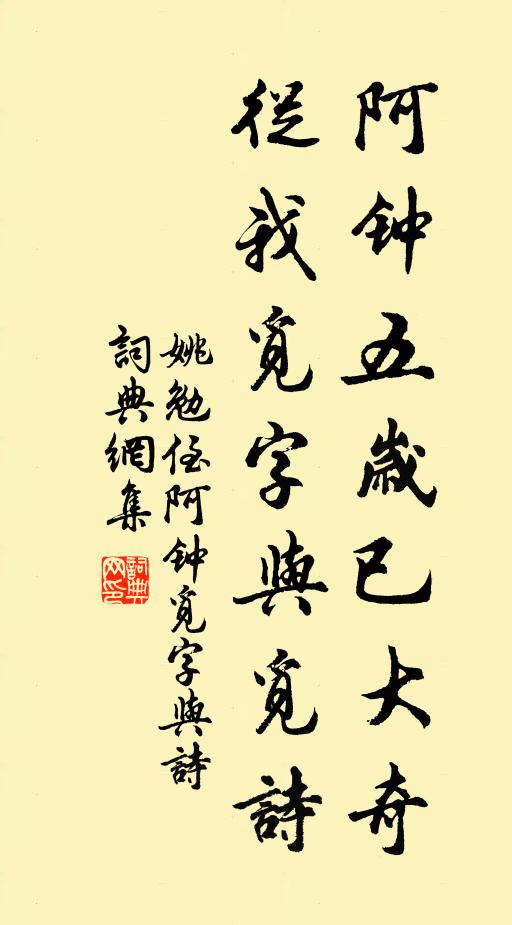 阿钟五歲已大奇
從我覓字與覓詩
姚勉侄阿钟覓字與詩
詞典網集
詞典网印